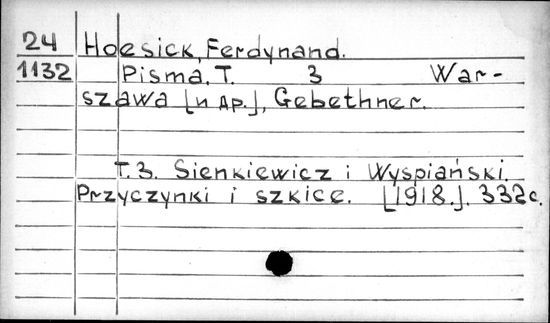 24 Hoesick, Ferdynand.
1132 Pisma. T. 3 War-
szawa [и др.], Gebethner.
T. 3. Sienkiewicz i Wyspiański.
Przyczynki i szkice. [1918.]. 332c.